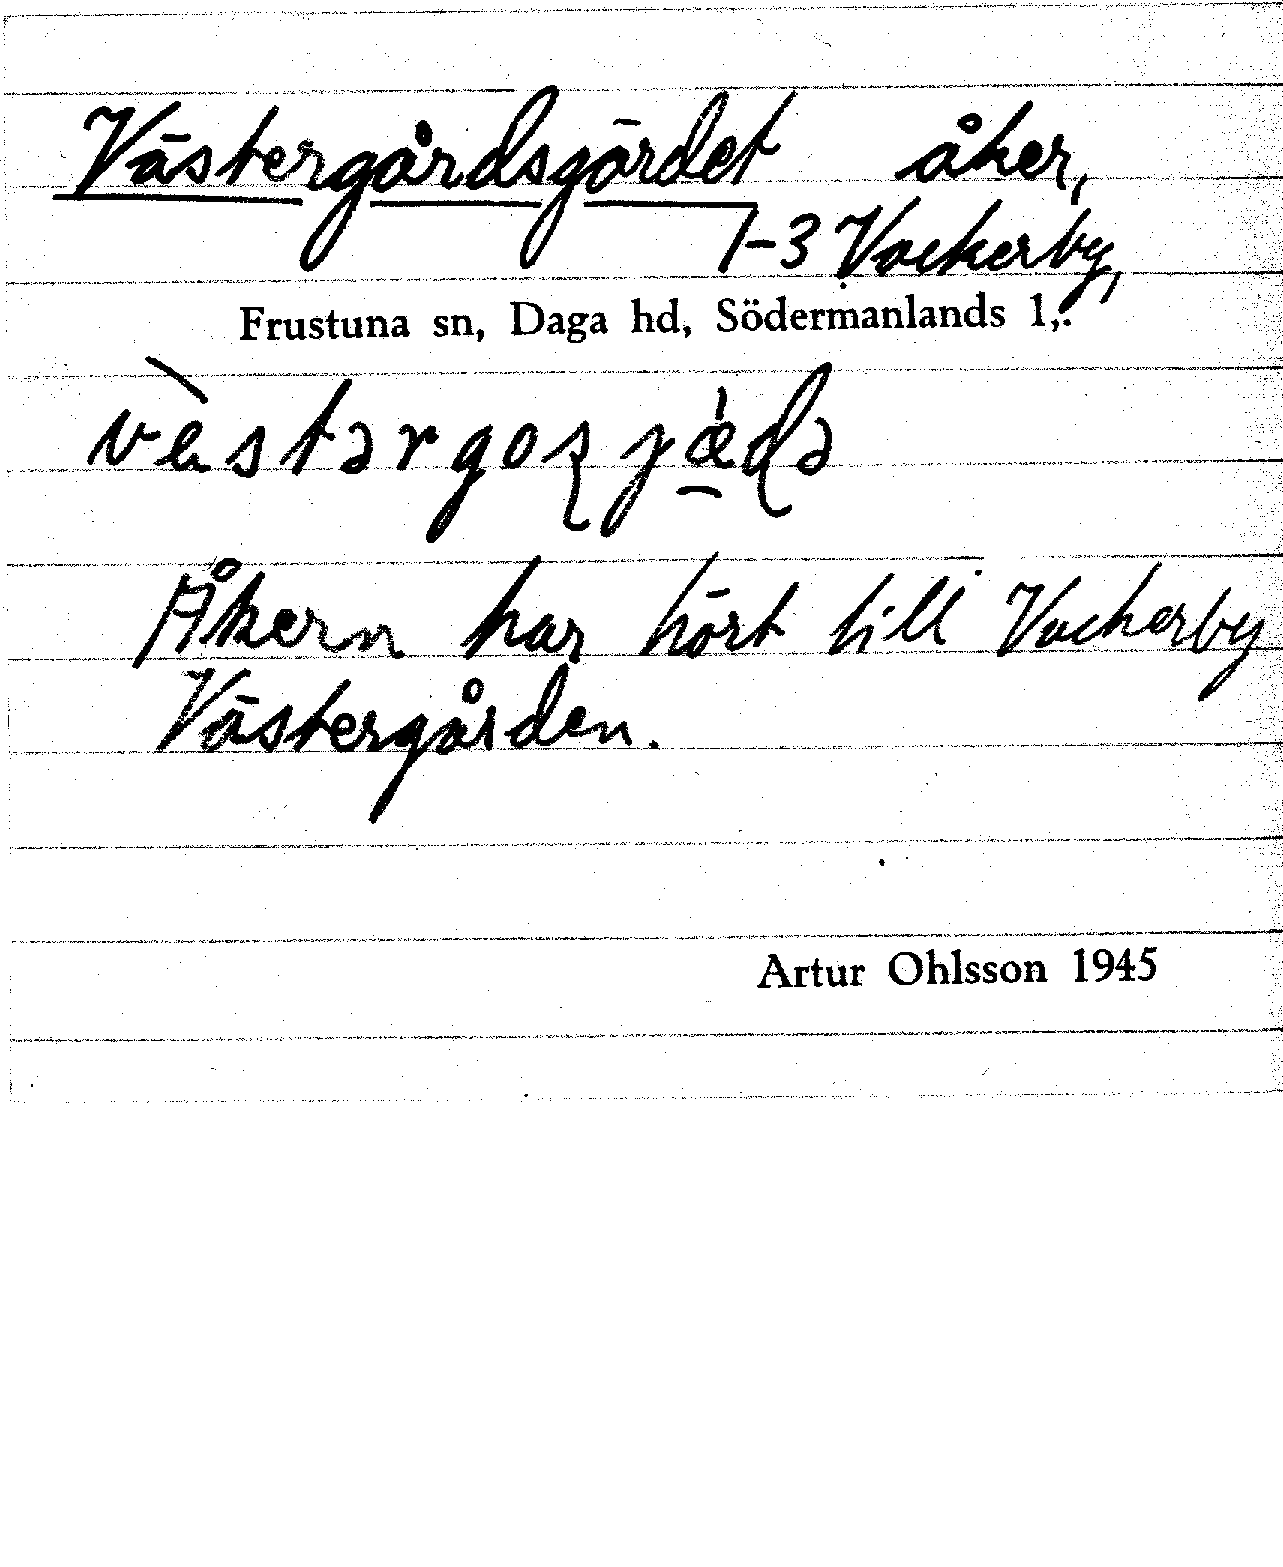 Västergårdsgärdet åker,
1-3 Vackerby,
Frustuna sn, Daga hd, Södermanlands l,.
Åkern har hört till Vackerby
Västergården.
Artur Ohlsson 1945